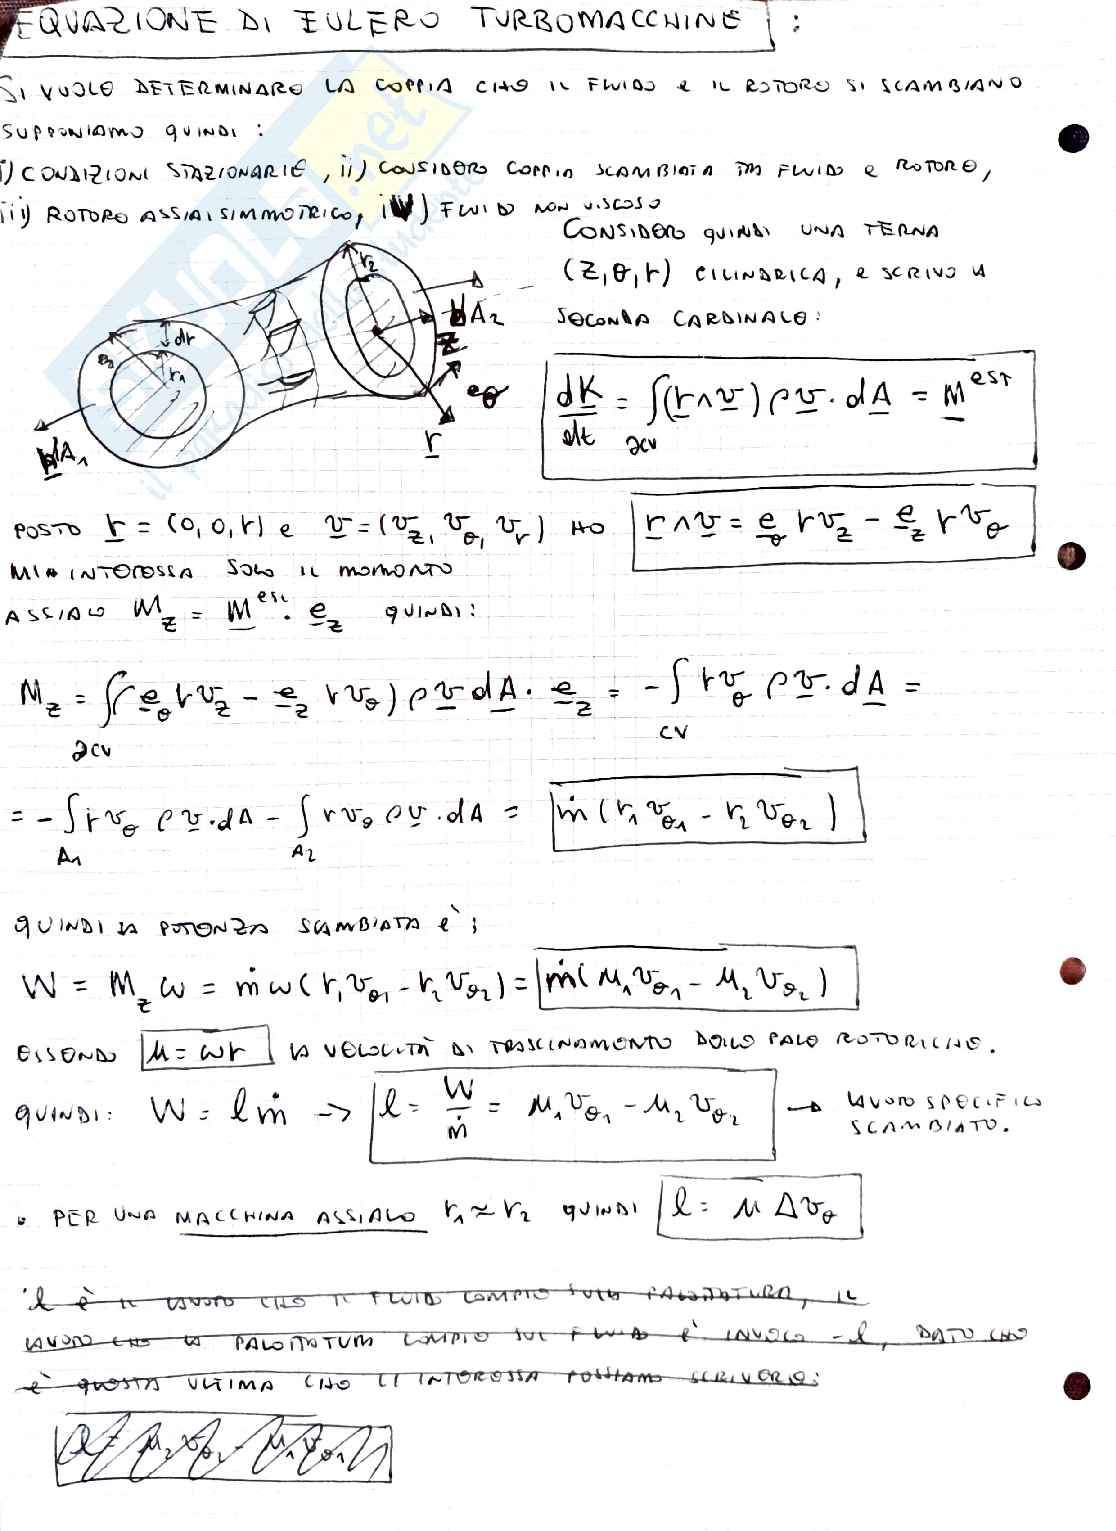 EQUAZIONE DI EULERO TURBOMACCHINE :
SI VUOLE DETERMINARE LA COPPIA CHE IL FLUIDO E IL ROTORE SI SCAMBIANO
SUPPONIAMO QUINDI :
i) CONDIZIONI STAZIONARIE, ii) CONSIDERO COPPIA SCAMBIATA TRA FLUIDO E ROTORE,
iii) ROTORE ASSIALSIMMETRICO, iV) FLUIDO NON VISCOSO
CONSIDERO QUINDI UNA TERNA
(Z, θ, r) CILINDRICA, E SCRIVO LA
SECONDA CARDINALE:
r2
dr
r1
dA2
z
eθ
r
dA1
dK/dt = ∫∂CV (r ∧ v) ρ v · dA = M^EST
POSTO r = (0, 0, r) E v = (vz, vθ, vr) HO r ∧ v = eθ r vz - ez r vθ
MI INTERESSA SOLO IL MOMENTO
ASSIALE Mz = M^EST · ez QUINDI:
Mz = ∫∂CV (eθ r vz - ez r vθ) ρ v dA · ez = - ∫CV r vθ ρ v · dA =
= - ∫A1 r vθ ρ v · dA - ∫A2 r vθ ρ v · dA = ṁ (r1 vθ1 - r2 vθ2)
QUINDI LA POTENZA SCAMBIATA È:
W = Mz ω = ṁ ω (r1 vθ1 - r2 vθ2) = ṁ (u1 vθ1 - u2 vθ2)
ESSENDO u = ωr LA VELOCITÀ DI TRASCINAMENTO DELLE PALE ROTORICHE.
QUINDI: W = l ṁ → l = W/ṁ = u1 vθ1 - u2 vθ2 → LAVORO SPECIFICO
SCAMBIATO.
• PER UNA MACCHINA ASSIALE r1 ≈ r2 QUINDI l = u Δvθ
l È IL LAVORO CHE IL FLUIDO COMPIE SULLA PALETTATURA, IL
LAVORO CHE LA PALETTATURA COMPIE SUL FLUIDO È INVECE -l, DATO CHE
È QUESTA ULTIMA CHE CI INTERESSA POSSIAMO SCRIVERE:
l = u2 vθ2 - u1 vθ1